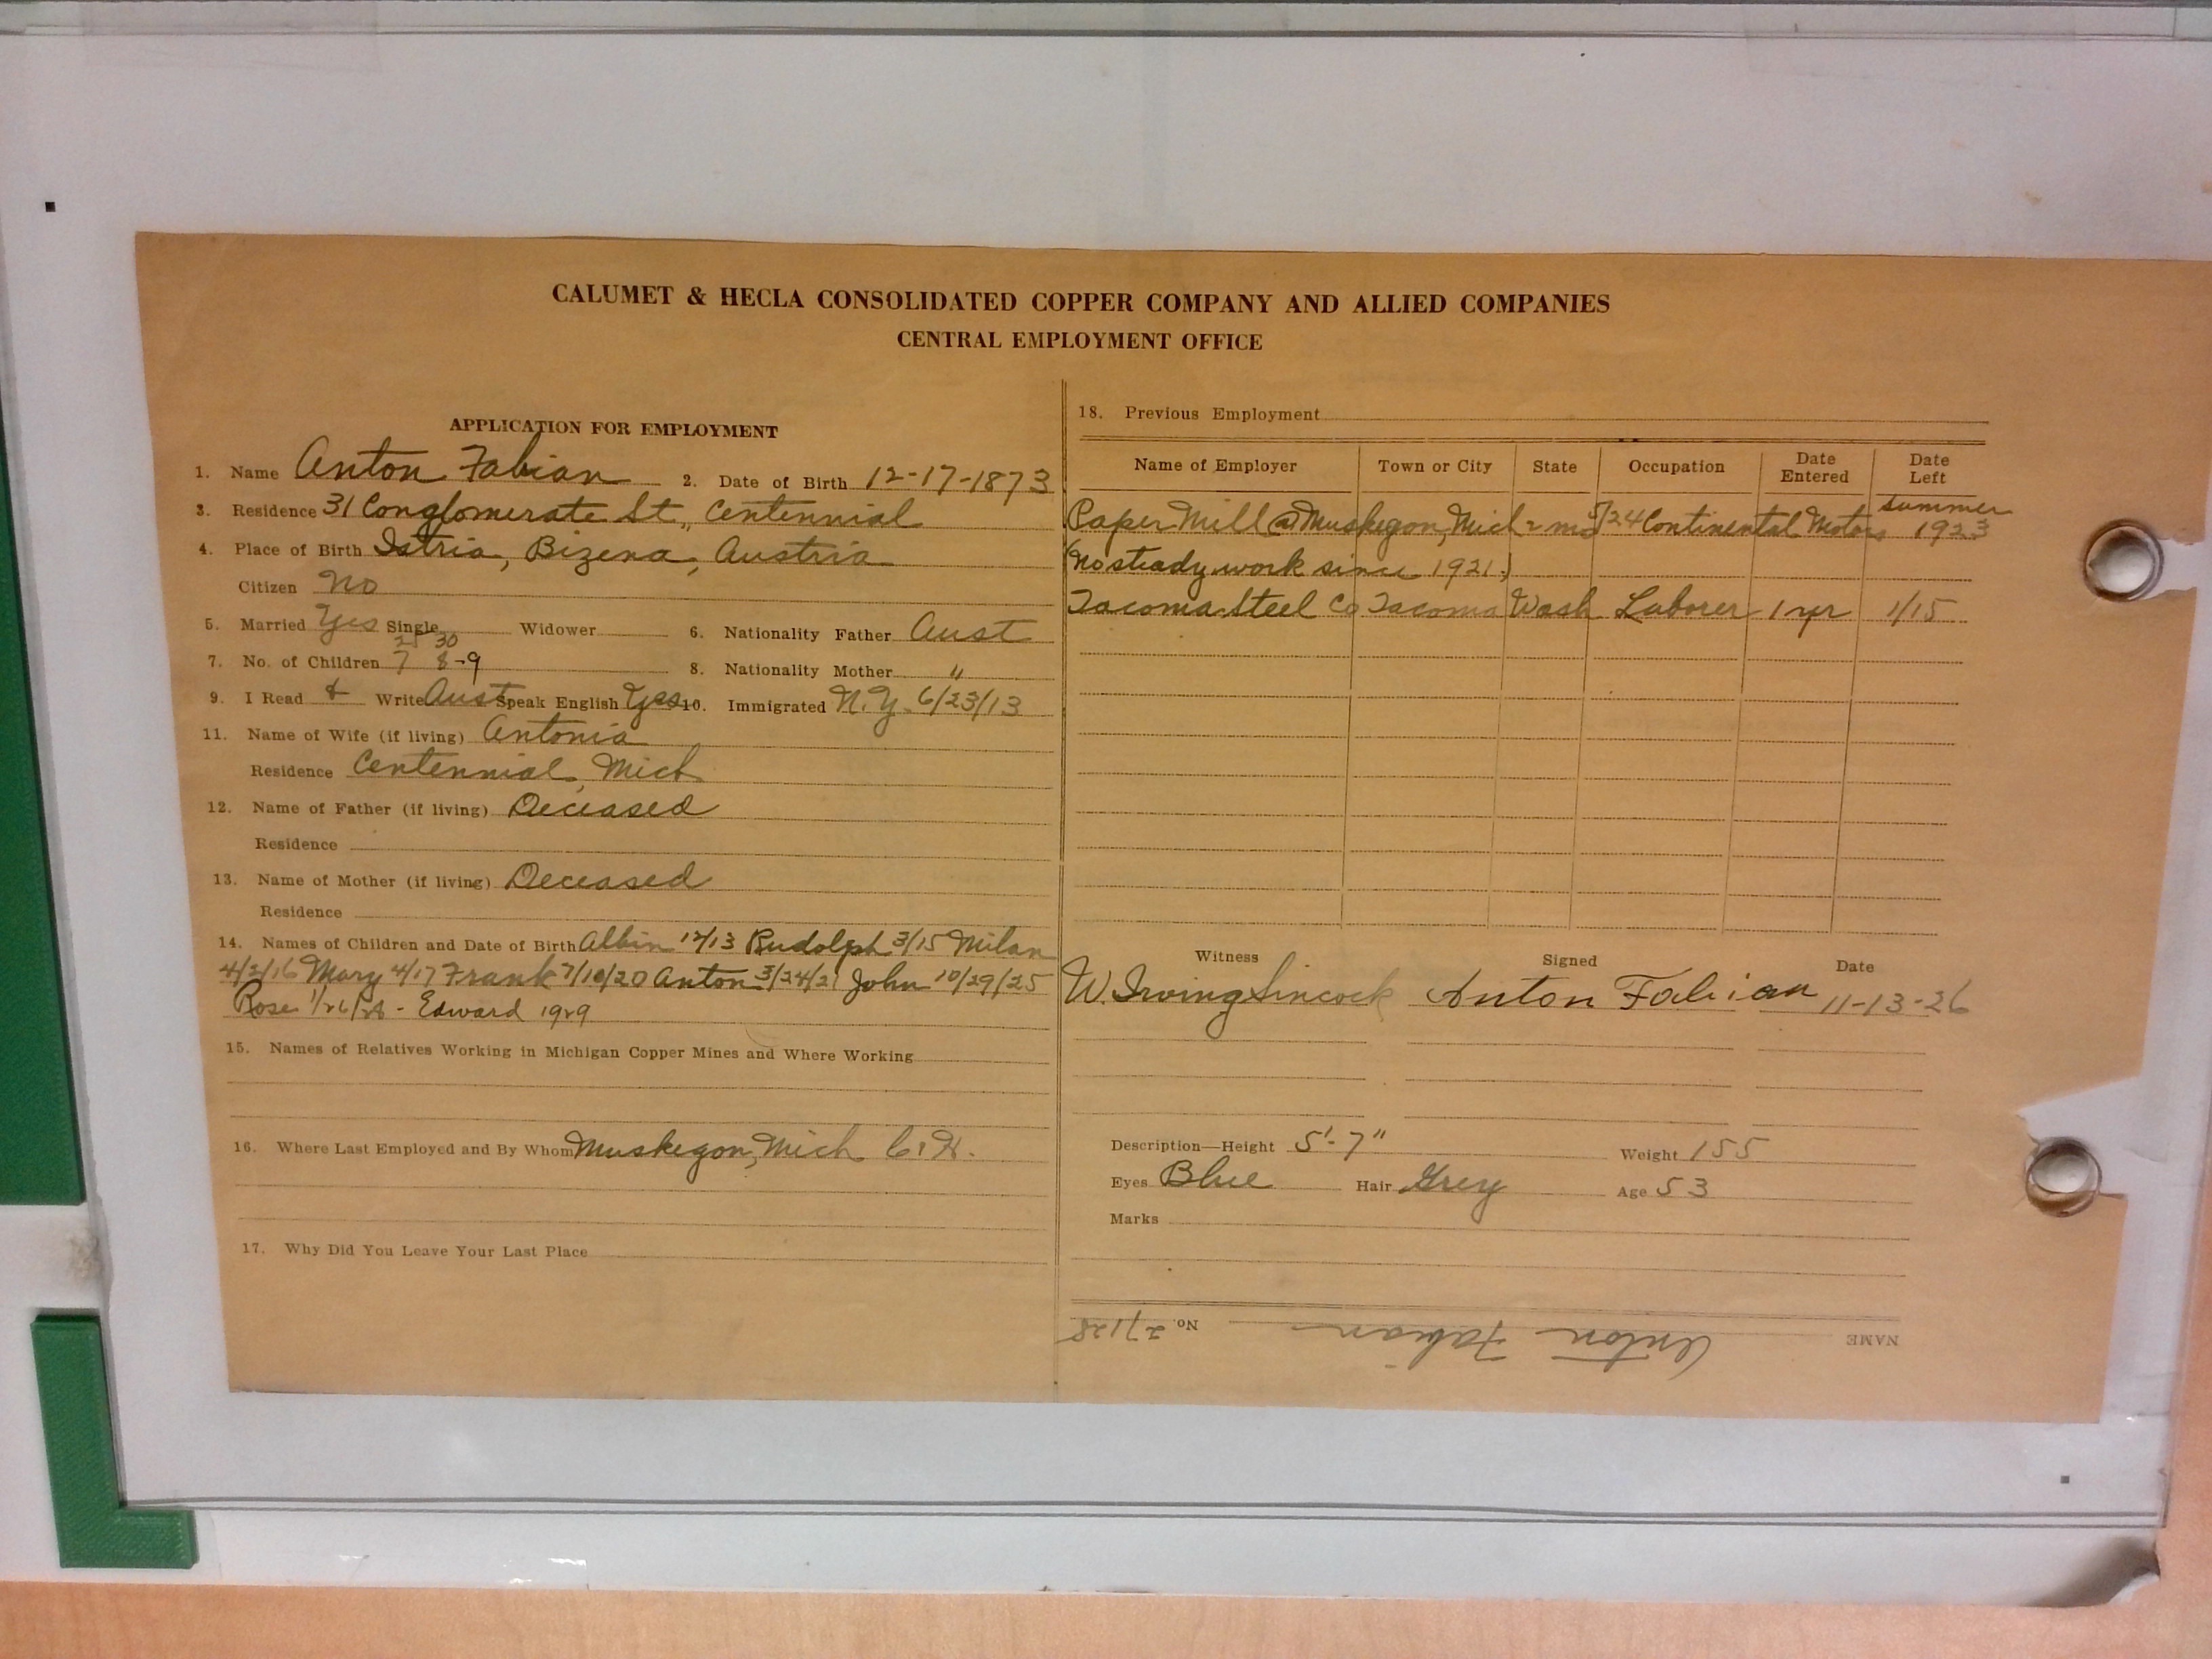 CALUMET & HECLA CONSOLIDATED COPPER COMPANY AND ALLIED COMPANIES
CENTRAL EMPLOYMENT OFFICE
APPLICATION FOR EMPLOYMENT
1. Name Anton Fabian 2. Date of Birth 12-17-1873
3. Residence 31 Conglomerate St., Centennial
4. Place of Birth Istria, Bizena, Austria
Citizen No
5. Married Yes Single Widower 6. Nationality Father Aust
30
7. No. of Children 7 8-9 8. Nationality Mother "
9. I Read & Write Aust Speak English Yes 10. Immigrated N.Y. 6/23/13
11. Name of Wife (if living) Antonia
Residence Centennial, Mich
12. Name of Father (if living) Deceased
Residence
13. Name of Mother (if living) Deceased
Residence
14. Names of Children and Date of Birth Albin 12/13 Rudolph 3/15 Milan
4/2/16 Mary 4/17 Frank 7/10/20 Anton 3/24/21 John 10/29/25
Rose 1/26/28 - Edward 1929
15. Names of Relatives Working in Michigan Copper Mines and Where Working
16. Where Last Employed and By Whom Muskegon, Mich C & H.
17. Why Did You Leave Your Last Place
18. Previous Employment
Name of Employer Town or City State Occupation Date Entered Date Left
summer
Paper Mill @ Muskegon, Mich 2 mo 5/24 Continental Motors 1923
(No steady work since 1921.)
Tacoma Steel Co Tacoma Wash Laborer 1 yr 1/15
Witness Signed Date
W. Irving Sincock Anton Fabian 11-13-26
Description—Height 5'-7" Weight 155
Eyes Blue Hair Grey Age 53
Marks
NAME Anton Fabian No. 27128